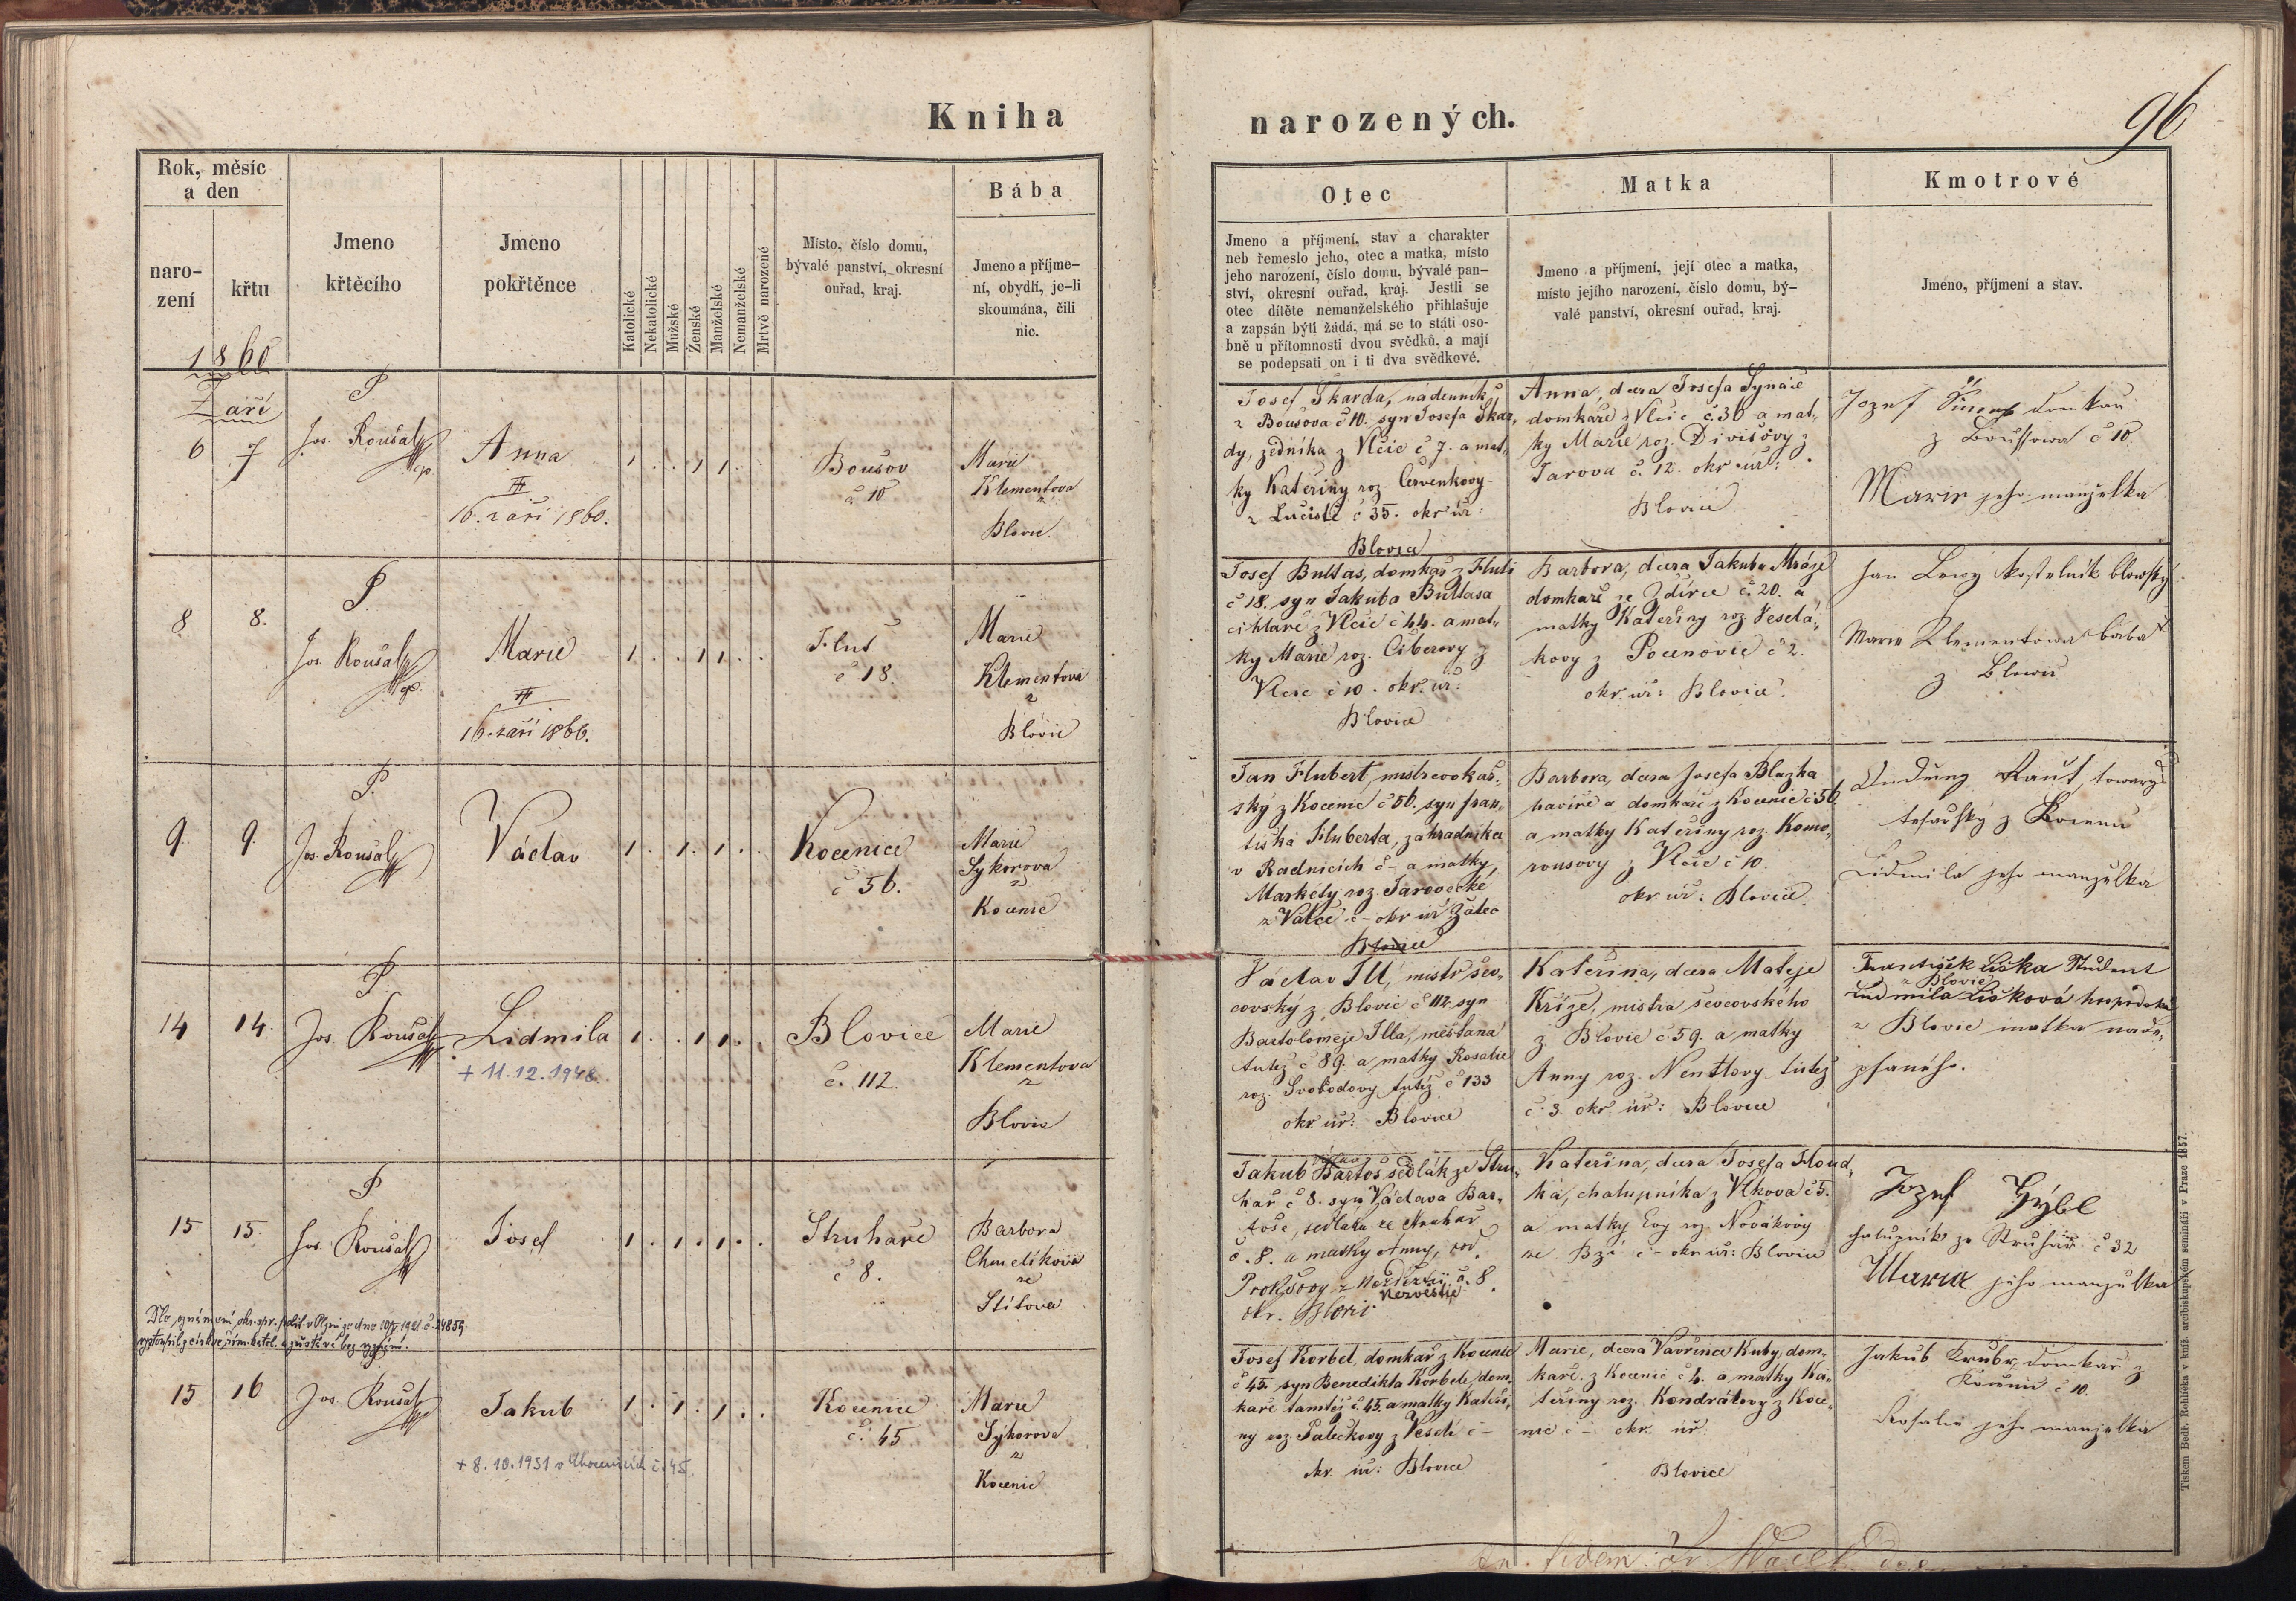 Kniha
narozených.
96
Rok, měsíc
a den
naro-
zení
křtu
Jmeno
křtěcího
Jmeno
pokřtěnce
Katolické
Nekatolické
Mužské
Ženské
Manželské
Nemanželské
Mrtvě narozené
Místo, číslo domu,
bývalé panství, okresní
ouřad, kraj.
Bába
Jmeno a příjme-
ní, obydlí, je-li
skoumána, čili
nic.
Otec
Jmeno a příjmení, stav a charakter
neb řemeslo jeho, otec a matka, místo
jeho narození, číslo domu, bývalé pan-
ství, okresní ouřad, kraj. Jestli se
otec dítěte nemanželského přihlašuje
a zapsán býti žádá, má se to státi oso-
bně u přítomnosti dvou svědků, a mají
se podepsati on i ti dva svědkové.
Matka
Jmeno a příjmení, její otec a matka,
místo jejího narození, číslo domu, bý-
valé panství, okresní ouřad, kraj.
Kmotrové
Jméno, příjmení a stav.
1860
Září
6
7
P
Jos. Roušal
Anna
16. září 1860.
Boušov
č 10
Marie
Klementova
z
Blovic.
Josef Škarda, nádenník
z Boušova č 10. syn Josefa Škar„
dy, zedníka z Vlčic č 7. a mat„
ky Kateřiny roz. Červenkovy
z Lučiště č 35. okr úř:
Blovice
Anna, dcera Josefa Synáče
domkáře z Vlčic č. 36 a mat„
ky Marie roz. Divišovy z
Jarova č. 12. okr. úř:
Blovice
Jozef domkař
z č 10.
Marie jeho manželka
8
8.
P.
Jos. Roušal
Marie
16. září 1860.
Hluš
č 18.
Marie
Klementova
z
Blovic
Josef Bultas, domkář z Hluši
č 18. syn Jakuba Bultasa
cihláře z Vlčic č 44. a mat„
ky Marie roz. Ciberovy z
Vlčic č 10. okr. úř:
Blovice
Barbora, dcera Jakuba Mráze
domkáře ze Zdírce č. 20. a
matky Kateřiny roz. Veselá„
kovy z Pocenovic č 2.
okr. úř: Blovice.
Jan kostelník blowský
Marie Klementowa bába
z Blowic
9.
9.
P.
Jos. Roušal
Václav
Kocenice
č 56.
Marie
Sykorova
z
Kocenic
Jan Hubert, mistr cvokař„
ský z Kocenic č 56. syn Fran„
tiška Huberta, zahradníka
v Radnicích č – a matky
Markéty roz. Jarovecké
z Valče č – okr úř Žatec
Blovice
Barbora, dcera Josefa Blažka
havíře a domkáře z Kocenic č 56
a matky Kateřiny roz. Komo„
rousovy z Vlčic č 10.
okr. úř: Blovice.
towaryš
tesařský z
Lidmila jeho manželka
14
14.
P.
Jos. Roušal
Lidmila
+ 11.12.1948.
Blovice
č. 112.
Marie
Klementova
z
Blovic
Václav Ill, mistr šev„
covský z Blovic č 112. syn
Bartoloměje Illa, měšťana
tutéž č 89. a matky Rosalie
roz. Svobodovy tutéž č 133
okr úř: Blovice
Kateřina, dcera Matěje
Kříže, mistra ševcovského
z Blovic č 59. a matky
Anny roz. Nentlovy tutéž
č. 3. okr úř: Blovice
František Liška Student
z Blovic
Ludmila Lišková
z Blovic matka nade„
psaného.
15
15.
P
Jos. Roušal
Josef
Struhaře
č 8.
Barbora
Chmelíkova
ze
Stítova
Jakub Bartoš sedlák ze Stru„
hař č 8. syn Václava Bar„
toše, sedláka ze Struhař
č. 8. a matky Anny, roz.
Prokšovy z č. 8.
Nezvěstic
okr. Blovic
Kateřina, dcera Josefa Houd„
ka, chalupníka z Vlkova č 5.
a matky Evy roz. Novákovy
ze Bzí č – okr úř: Blovice
Jozef Hýbl
chalupník ze Struhař č 32
Maria jeho manželka
15
16
Jos. Roušal
Jakub
+ 8.10.1931 v Chocenicích č. 45.
Kocenice
č. 45
Marie
Sýkorova
z
Kocenic
Josef Korbel, domkář z Kocenic
č 45. syn Benedikta Korbele, dom„
káře tamtéž č 45. a matky Kateři„
ny roz. Palečkovy z Veselí č –
okr. úř: Blovice
Marie, dcera Vavřince Kuby, dom„
káře z Kocenic č 4. a matky Ka„
teřiny roz. Kondrátovy z Koce„
nic č – okr. úř:
Blovice
Jakub domkař z
č 10.
Rosalie jeho manželka
Tiskem Bedř. Rohlíčka v kníž. arcibiskupském semináři v Praze 1857.